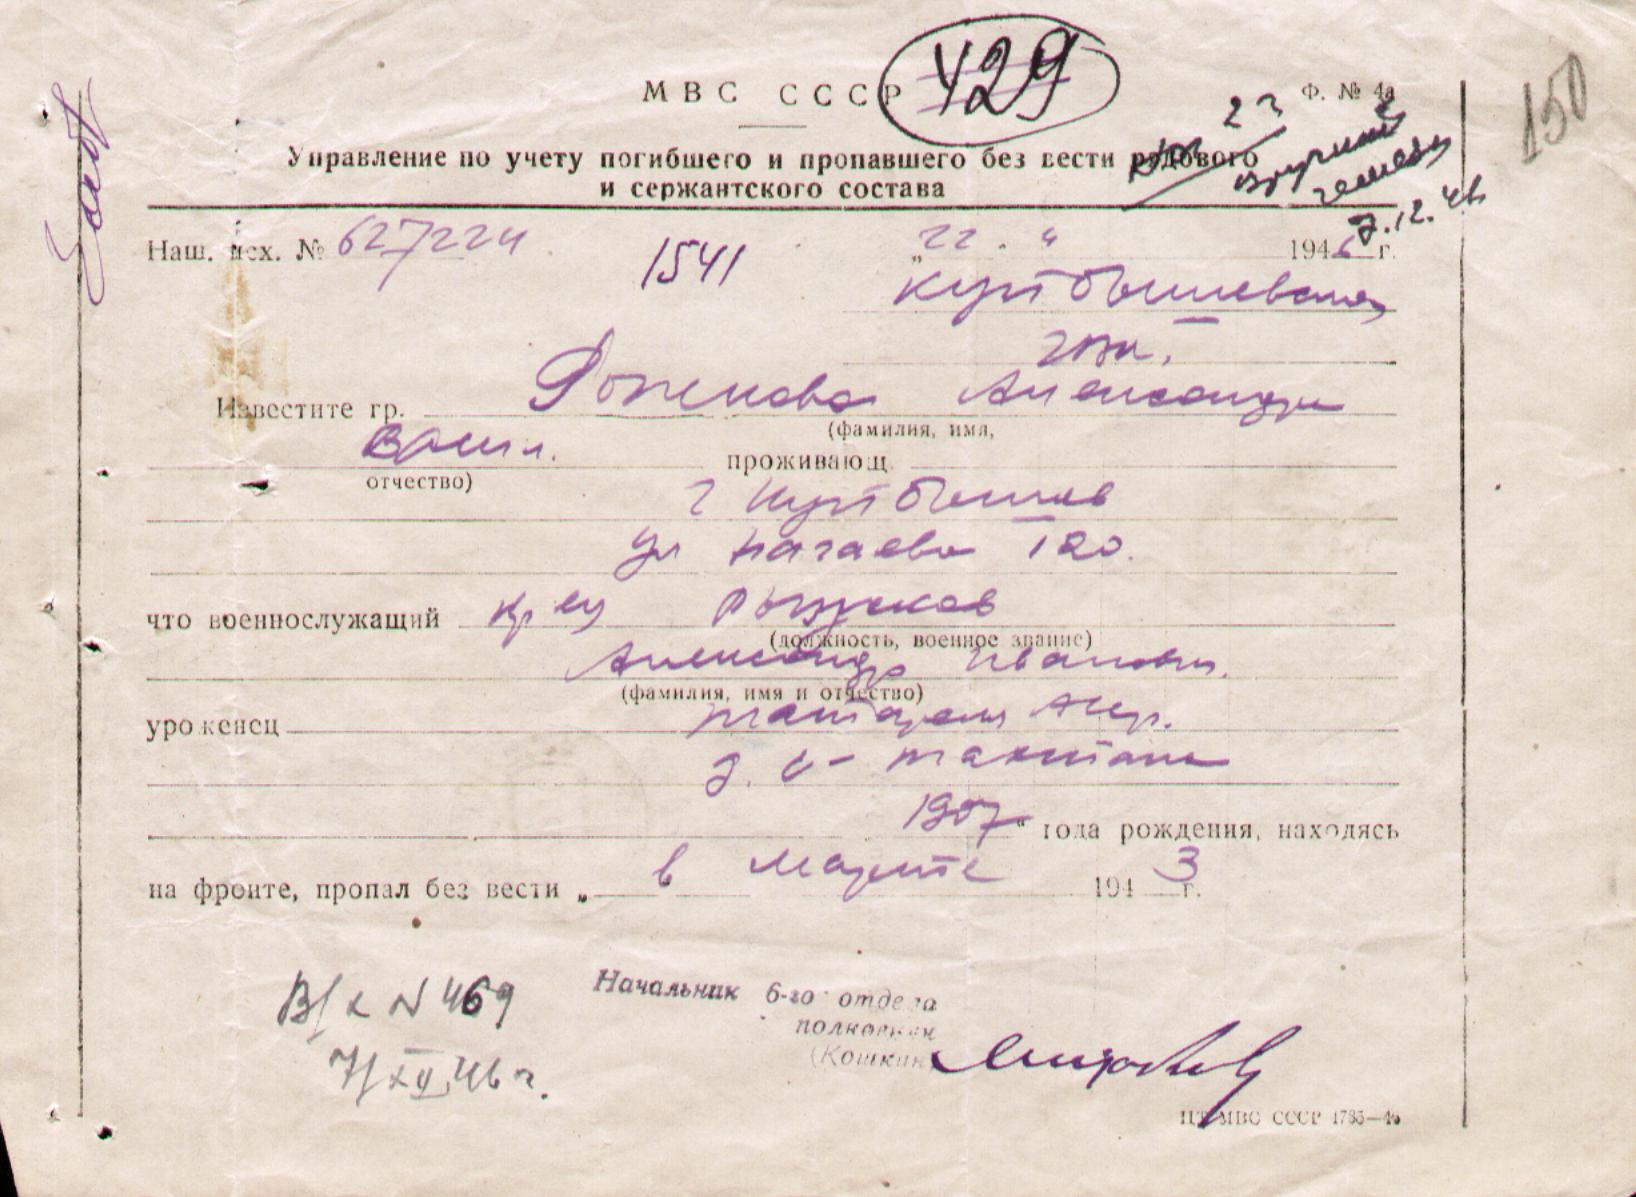 429
150
МВС СССР
Ф. № 4а
23
Управление по учету погибшего и пропавшего без вести рядового
и сержантского состава
7.12.46
Наш. исх. № 627224 1541 „22 " 1946 г.
Куйбышевский
гвк.
Известите гр. Александру
(фамилия, имя,
Васил. проживающ.
отчество)
г Куйбышев
ул 120.
что военнослужащий кр-ец
(должность, военное звание)
Александр Иванович
(фамилия, имя и отчество)
уроженец Татарская АССР.
1907 " года рождения, находясь
на фронте, пропал без вести „ в марте 1943 г.
Вх N 469
7/XII 46 г.
Начальник 6-го отдела
полковник
(Кошкин
ЦТ МВС СССР 1785—46